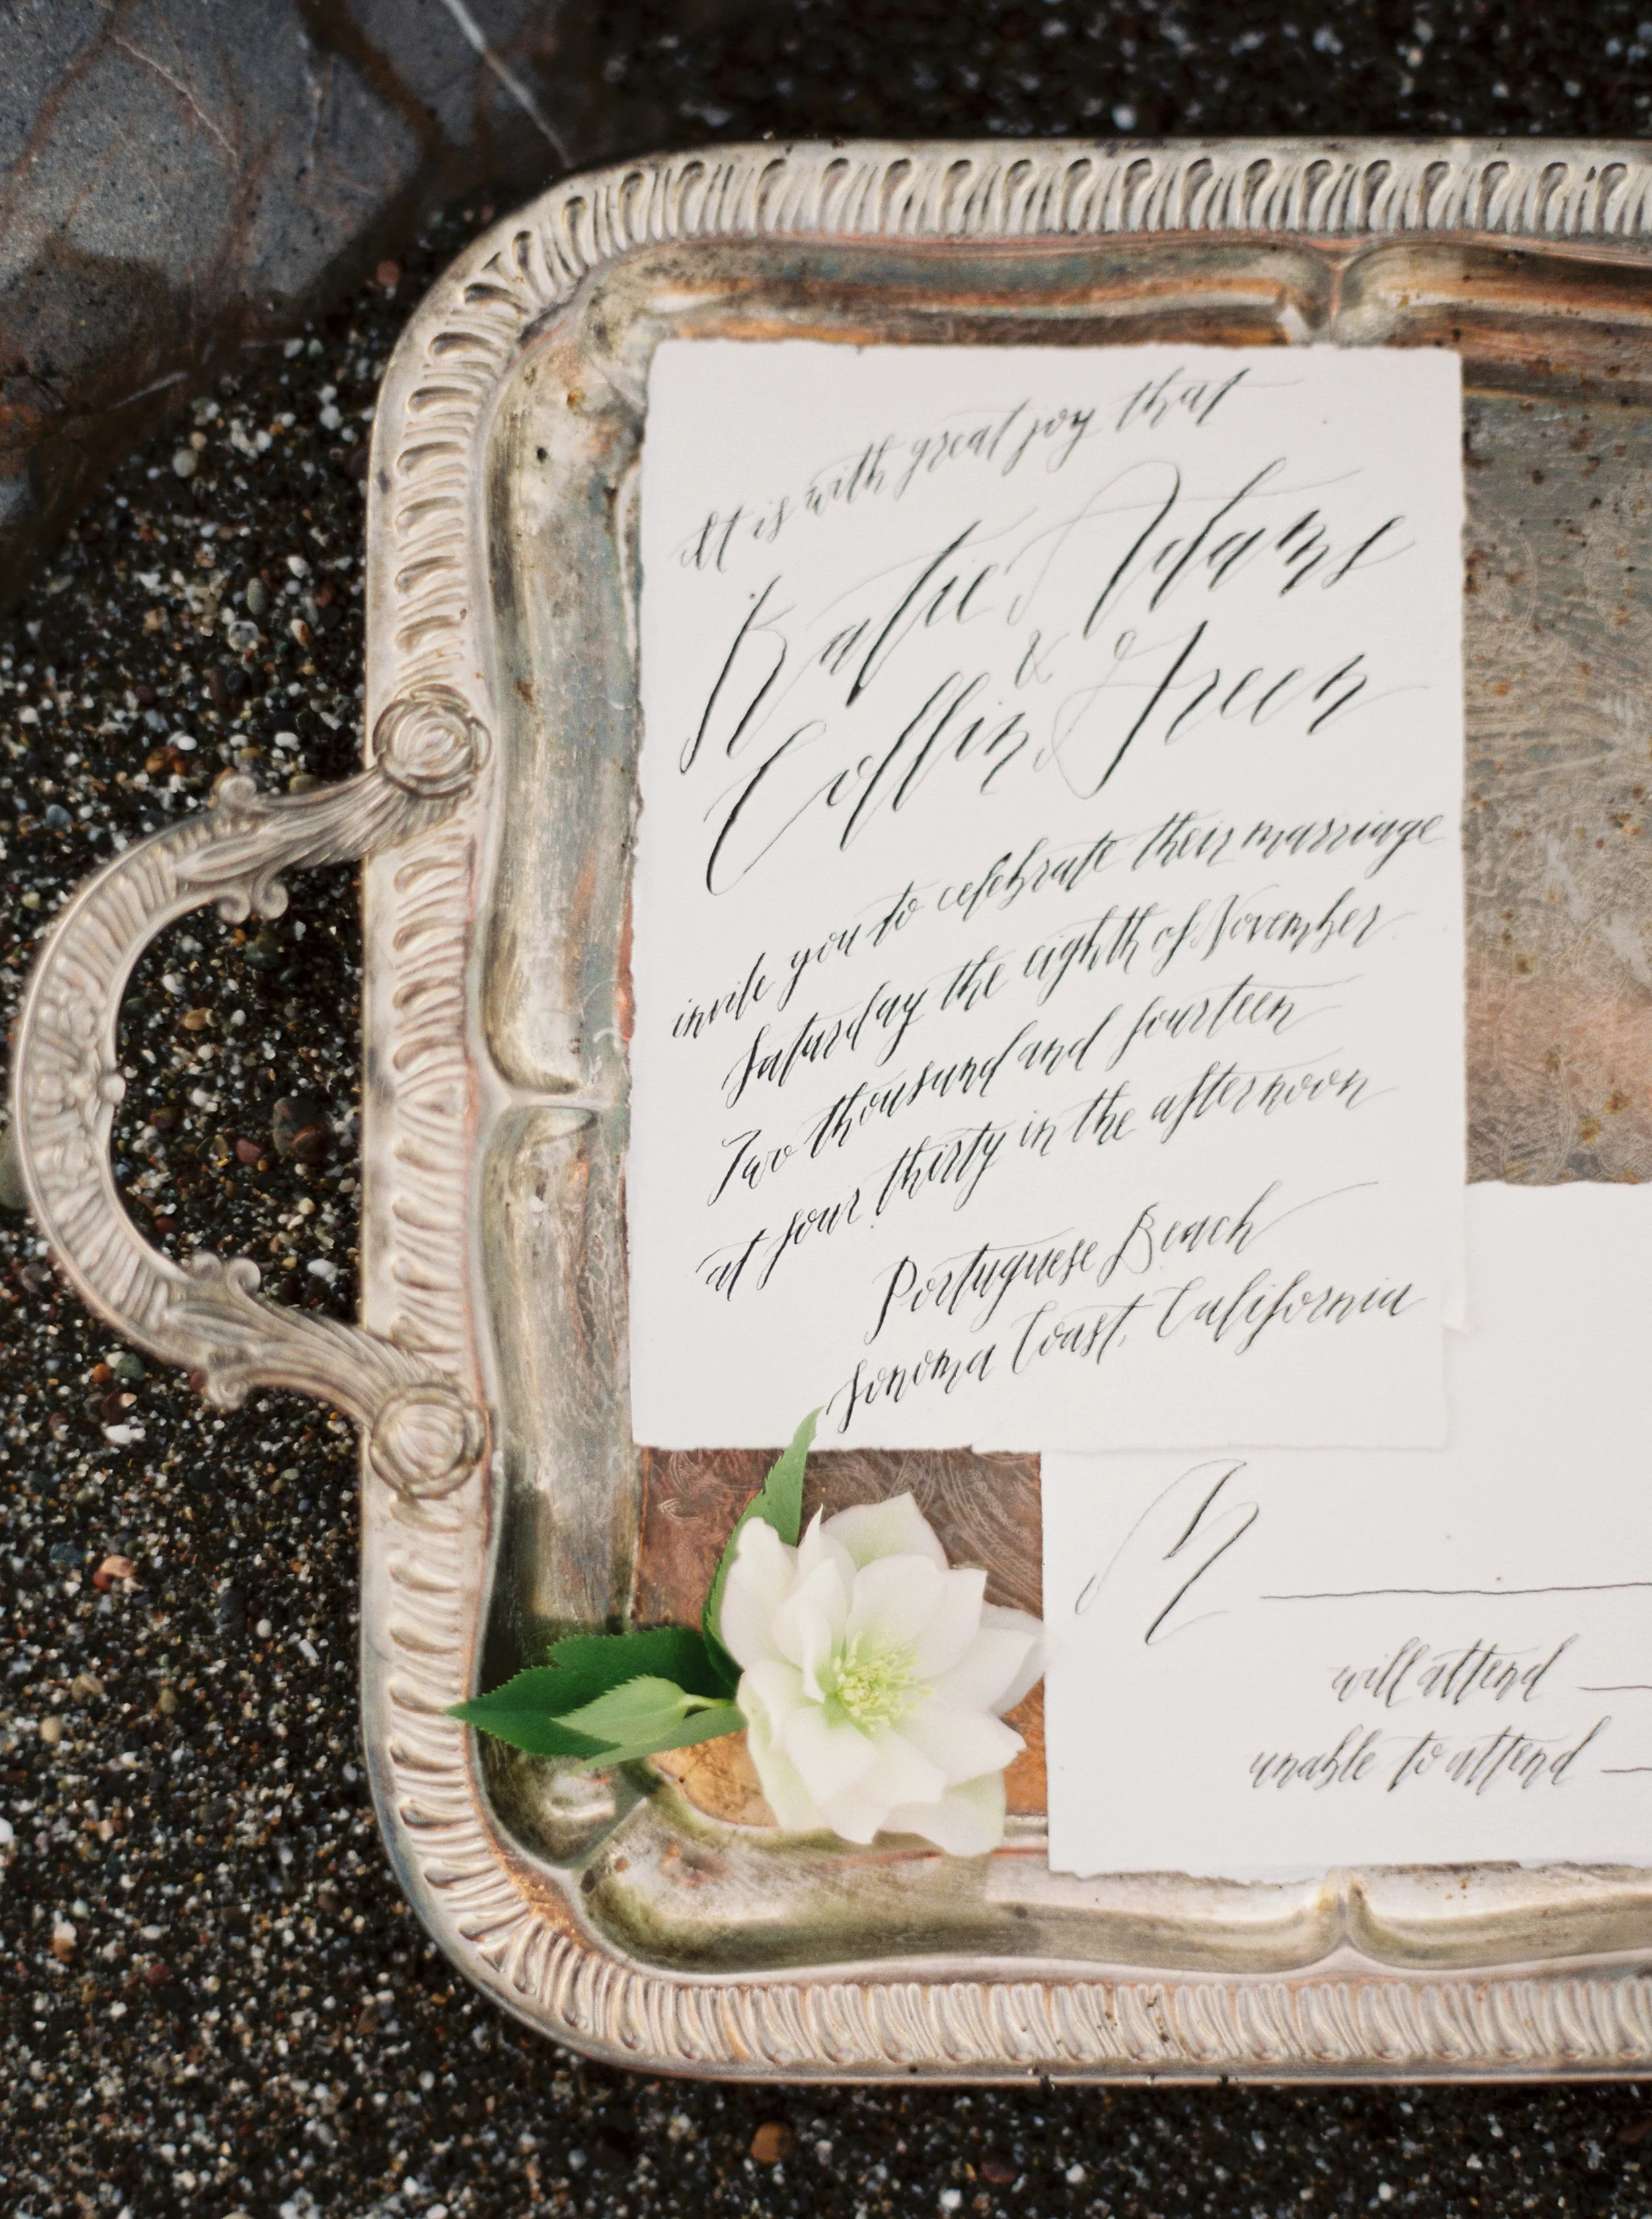 It is with great joy that
Katie Adams
&
Collin Green
invite you to celebrate their marriage
Saturday the eighth of November
Two thousand and fourteen
at four thirty in the afternoon
Portuguese Beach
Sonoma Coast, California
M
will attend
unable to attend